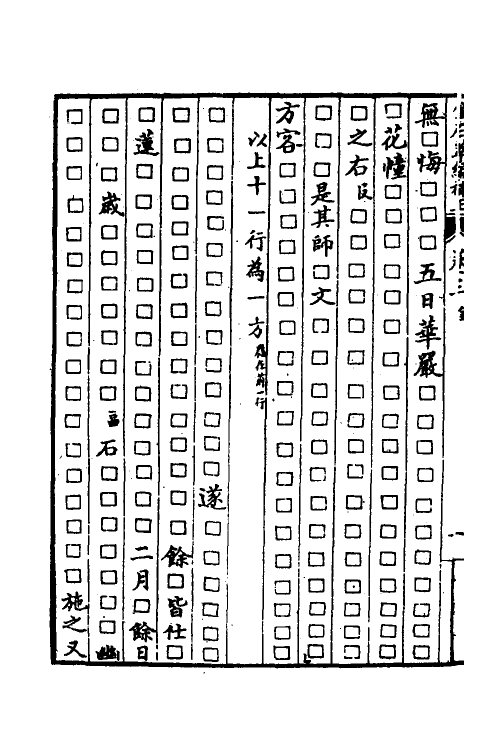 無□悔□□□五日華嚴□□□□□□□□□□□
□花幢□□□□□□□□□□□□□□□□□□
□之右□□□□□□□□□□□□□□□□□
□□□是其師□文□□□□□□□□□□□□□
方客□□□□□□□□□□□□□□□□□□□
以上十一行為一方在前一行
□□□□□□□□□□□□□□遂□□□□□□
□□□□□□□□□□□□□□□□餘□皆仕□
□蓮□□□□□□□□□□□□□□二月□餘日
□□□歲□□□□□□□石□□□□□□□幽
□□□□□□□□□□□□□□□□□□施之又